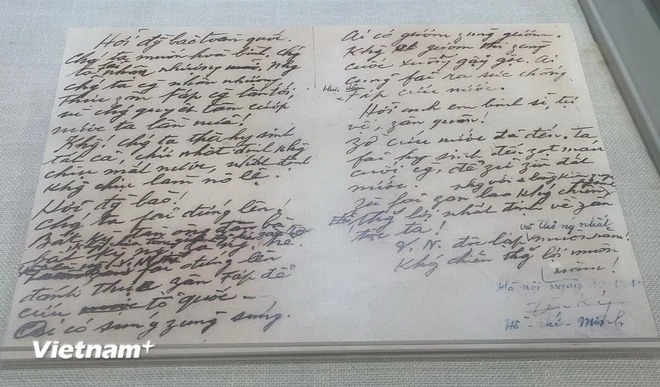 Hỡi đ/bào toàn quốc.
Chg ta muốn hòa bình. Chg
ta nhân nhượng. Nhg
chg ta cg nhân nhượng
thực zân Fáp cg lấn tới,
vì chg quyết tâm cướp
nước ta lần nữa!
Khg! chg ta thà hy sinh
tất cả, chứ nhất định khg
chịu mất nước, nhất định
khg chịu làm nô lệ.
Hỡi đg bào!
Chg ta fải đứng lên!
Bất kỳ đàn ông đàn bà
bất kỳ
fải đứng lên
đánh thực zân Fáp để
cứu tổ quốc –
Ai có súng zùng súng.
Ai có gươm zùng gươm.
Khg có gươm thì zùng
cuốc xuổng gậy gộc. Ai
cũng fải ra sức chống
Fáp cứu nước.
Hỡi anh em binh sĩ, tự
vệ, zân quân!
Zờ cứu nước đã đến. ta
fải hy sinh đến zọt máu
cuối cg, để zữ zìn đất
nước.
Zù fải zan lao khg chiến,
thg lợi nhất định về zân
tộc ta!
V. N. độc lập và thống nhất muôn năm!
Khg chiến thg lợi muôn
năm!
Hà nội ngày
Hồ - chí - Minh
Vietnam+